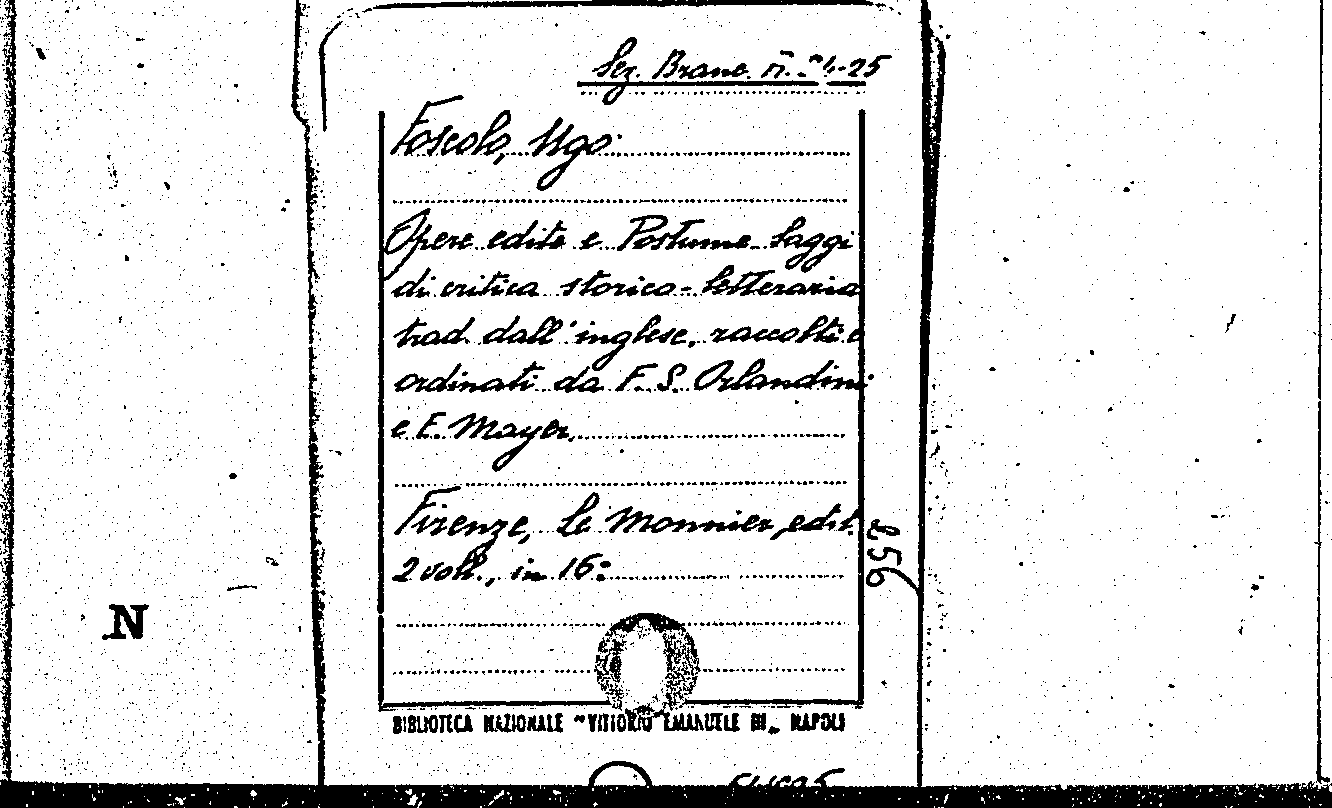 Sez. Branc. n.
Foscolo, Ugo
Opere edite e Postume Saggi
di critica storico-letteraria
trad. dall'inglese, raccolti e
ordinati da F. S. Orlandini
e E. Mayer,
Firenze, Le Monnier, edit.
2 voll., in 16:
256
N
BIBLIOTECA NAZIONALE "VITTORIO EMANUELE III" NAPOLI